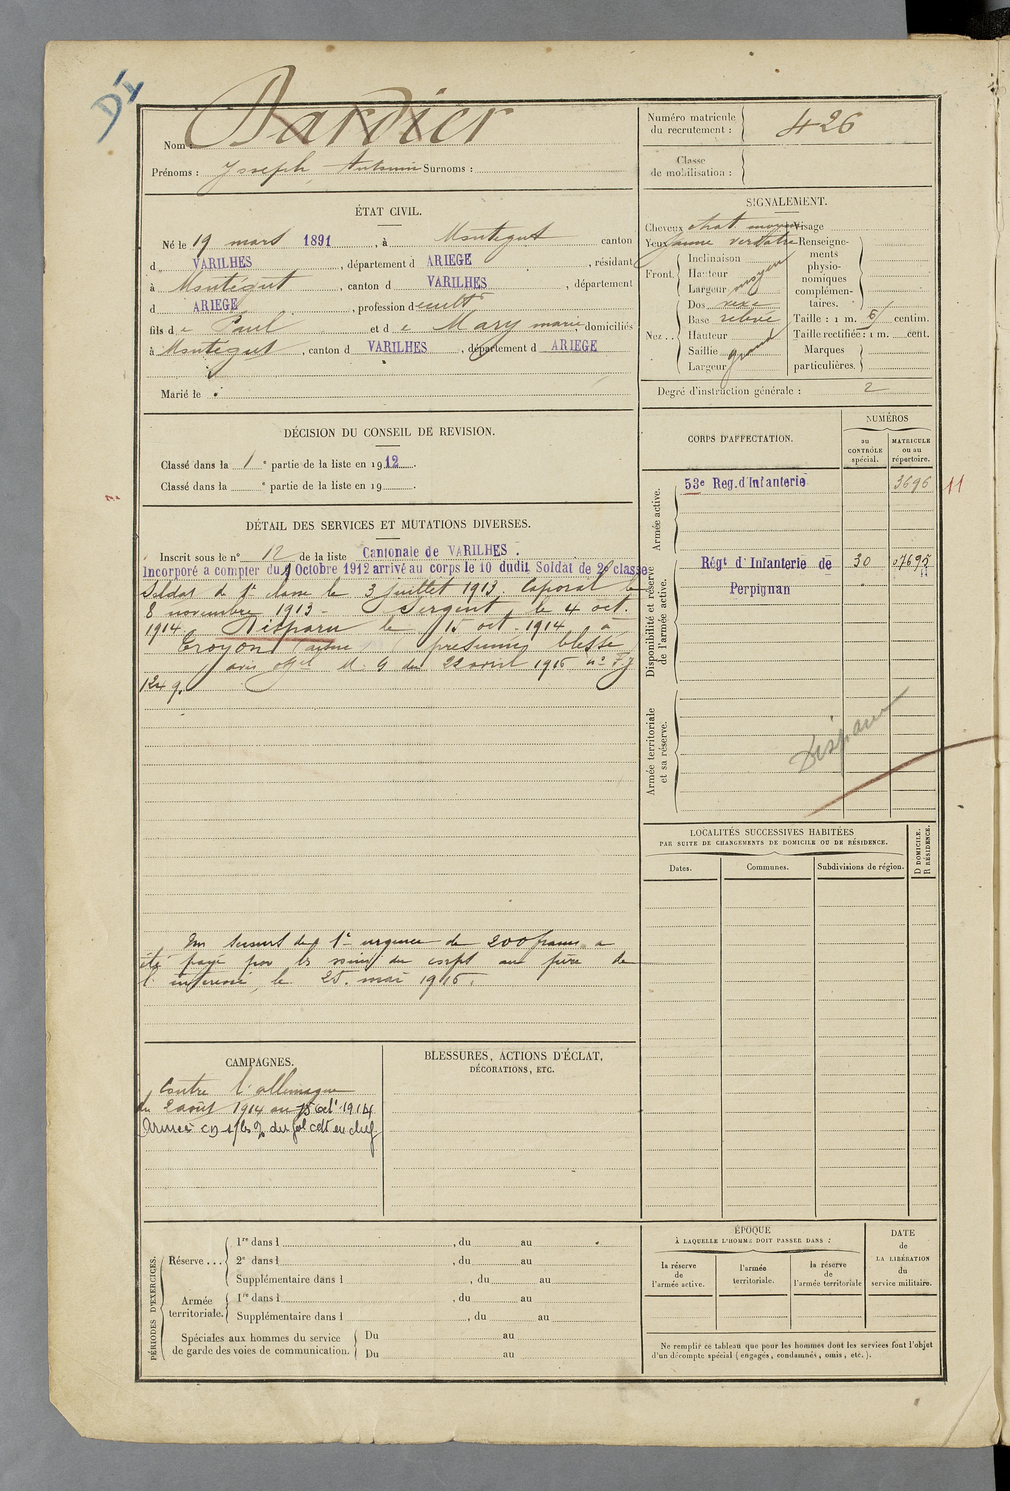 D4
Nom : Dardier
Prénoms : Joseph Antonin Surnoms :
Numéro matricule du recrutement : 426
Classe de mobilisation :
ÉTAT CIVIL.
Né le 19 mars 1891, à Montégut canton
d VARILHES, département d ARIEGE, résidant
à Montégut, canton d VARILHES, département
d ARIEGE, profession de cultr
fils de Paul et de Mary marie, domiciliés
à Montégut, canton d VARILHES, département d ARIEGE
Marié le
SIGNALEMENT.
Cheveux chat moyen Visage
Yeux jaune verdatre
Front. Inclinaison
Hauteur
Largeur moyen
Nez .. Dos vexe
Base relevé
Hauteur
Saillie
Largeur grand
Renseignements physionomiques complémentaires.
Taille : 1 m. 6 centim.
Taille rectifiée : 1 m. cent.
Marques particulières.
Degré d'instruction générale : 2
DÉCISION DU CONSEIL DE REVISION.
Classé dans la 1e partie de la liste en 1912.
Classé dans la e partie de la liste en 19 .
DÉTAIL DES SERVICES ET MUTATIONS DIVERSES.
Inscrit sous le n° 12 de la liste Cantonale de VARILHES.
Incorporé a compter du 1 Octobre 1912 arrivé au corps le 10 dudit Soldat de 2e classe
Soldat de 1e classe le 3 juillet 1913. Caporal le
8 novembre 1913 - Sergent, le 4 oct.
1914. Disparu le 15 oct. 1914 à
Troyon (aisne) présumé blessé
avis offel du 22 avril 1915 n° F.J
1249.
Un secours de 1e urgence de 200 francs a
été payé par les soins du corps au père de
l'intéressé, le 25. mai 1915.
CORPS D'AFFECTATION.
NUMÉROS
au CONTRÔLE spécial.
MATRICULE ou au répertoire.
Armée active.
53e Reg. d'Infanterie 3696 11
Disponibilité et réserve de l'armée active.
Régt d'Infanterie de 30 07695
Perpignan
Armée territoriale et sa réserve.
Disparu
LOCALITÉS SUCCESSIVES HABITÉES
PAR SUITE DE CHANGEMENTS DE DOMICILE OU DE RÉSIDENCE.
Dates. Communes. Subdivisions de région. D DOMICILE. R RÉSIDENCE.
CAMPAGNES.
Contre l'allemagne
du 2 août 1914 au 15 oct. 1914
BLESSURES, ACTIONS D'ÉCLAT,
DÉCORATIONS, ETC.
PÉRIODES D'EXERCICES.
Réserve ... 1re dans l , du au
2e dans l , du au
Supplémentaire dans l , du au
Armée territoriale. 1re dans l , du au
Supplémentaire dans l , du au
Spéciales aux hommes du service de garde des voies de communication. Du au
Du au
ÉPOQUE
À LAQUELLE L'HOMME DOIT PASSER DANS :
la réserve de l'armée active.
l'armée territoriale.
la réserve de l'armée territoriale
DATE de LA LIBÉRATION du service militaire.
Ne remplir ce tableau que pour les hommes dont les services font l'objet
d'un décompte spécial (engagés, condamnés, omis, etc.).